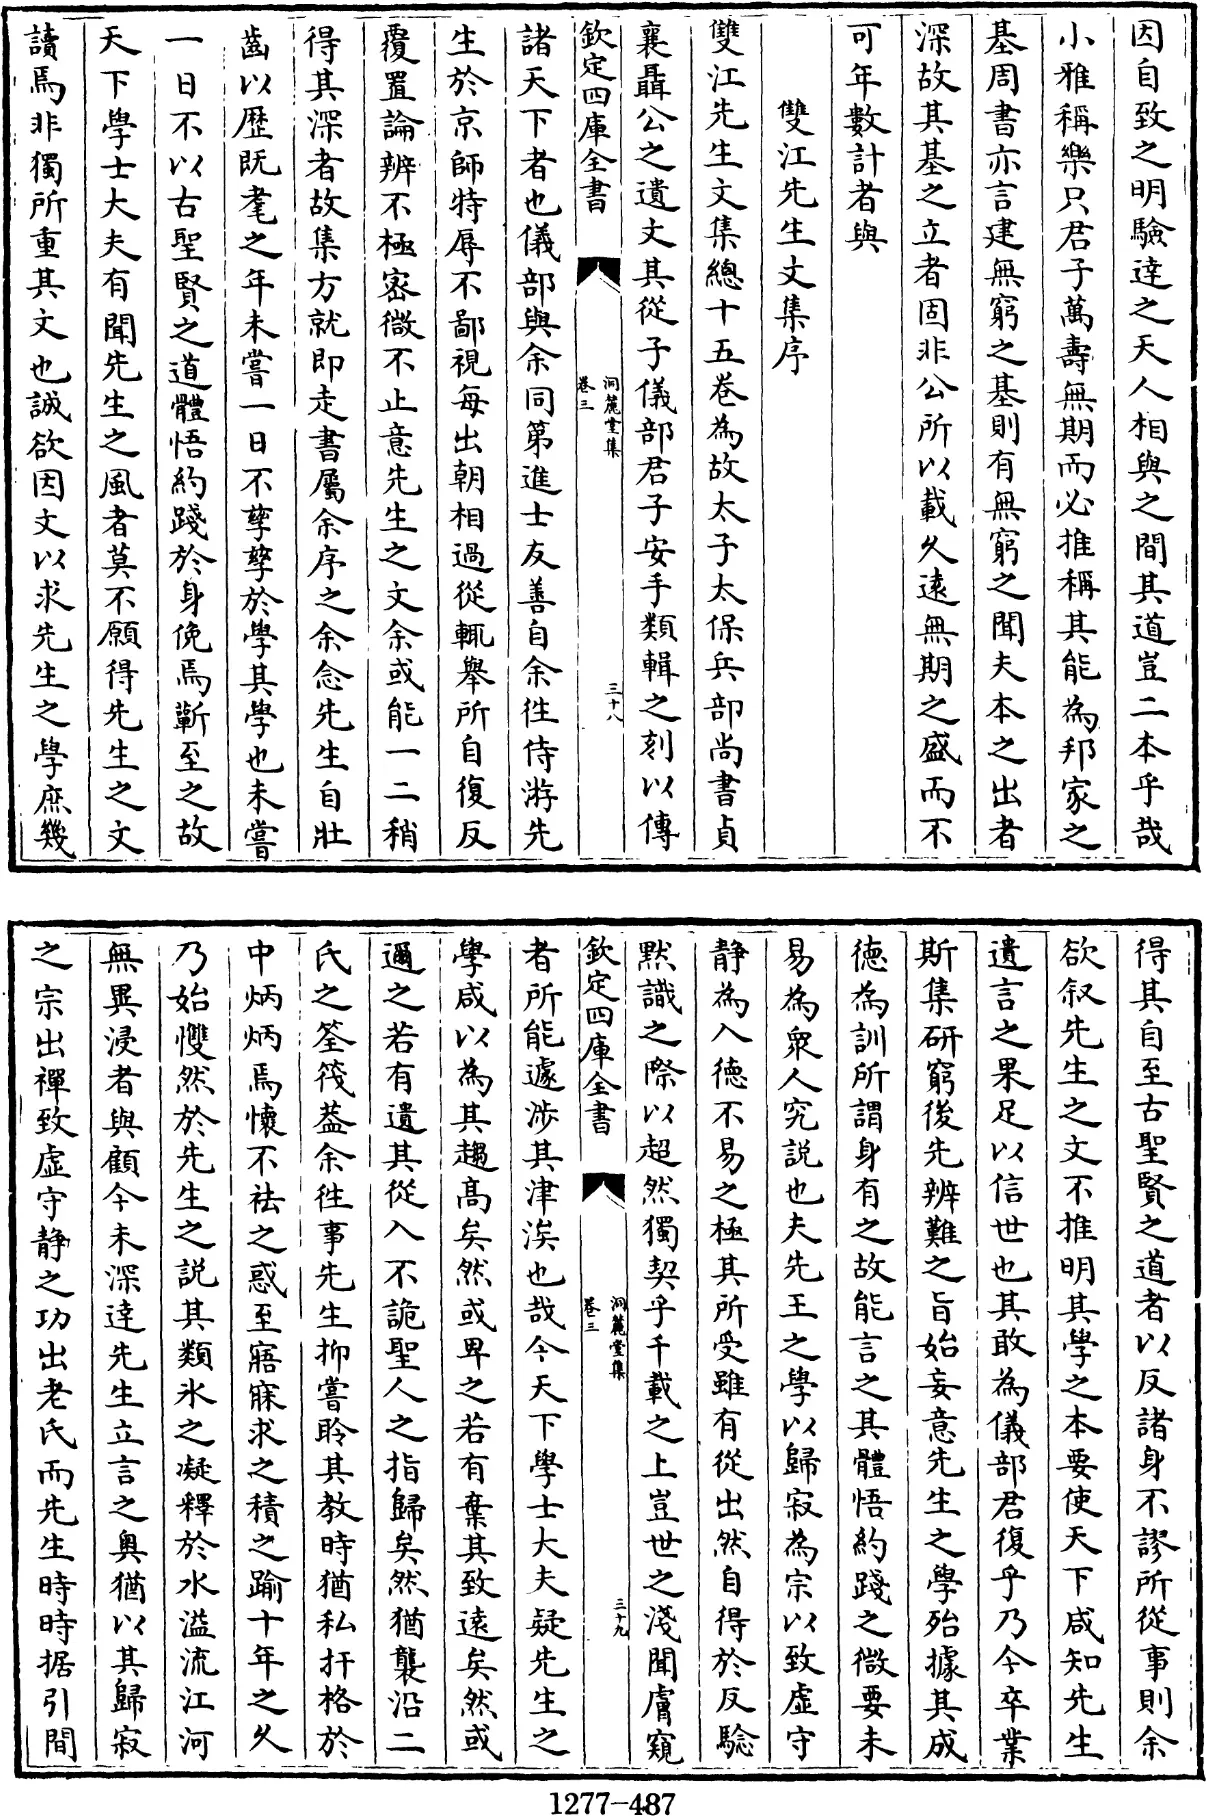 因自致之明驗達之天人相與之間其道豈二本乎哉
小雅稱樂只君子萬壽無期而必推稱其能為邦家之
基周書亦言建無窮之基則有無窮之聞夫本之出者
深故其基之立者固非公所以載久遠無期之盛而不
可年數計者與
雙江先生文集序
雙江先生文集總十五卷為故太子太保兵部尚書貞
襄聶公之遺文其從子儀部君子安手類輯之刻以傳
欽定四庫全書
洞麓堂集
卷三
三十八
諸天下者也儀部與余同第進士友善自余徃侍游先
生於京師特辱不鄙視每出朝相過從輒舉所自復反
覆置論辨不極宻微不止意先生之文余或能一二稍
得其深者故集方就即走書屬余序之余念先生自壯
齒以歴既耄之年未嘗一日不孳孳於學其學也未嘗
一日不以古聖賢之道體悟約踐於身俛焉蘄至之故
天下學士大夫有聞先生之風者莫不願得先生之文
讀焉非獨所重其文也誠欲因文以求先生之學庶幾
得其自至古聖賢之道者以反諸身不謬所從事則余
欲叙先生之文不推明其學之本要使天下咸知先生
遺言之果足以信世也其敢為儀部君復乎乃今卒業
斯集研窮後先辨難之旨始妄意先生之學殆據其成
徳為訓所謂身有之故能言之其體悟約踐之微要未
易為衆人究説也夫先王之學以歸寂為宗以致虛守
靜為入德不易之極其所受雖有從出然自得於反騐
黙識之際以超然獨契乎千載之上豈世之淺聞膚窺
欽定四庫全書
洞麓堂集
卷三
三十九
者所能遽涉其津涘也哉今天下學士大夫疑先生之
學咸以為其趨高矣然或卑之若有棄其致遠矣然或
邇之若有遺其從入不詭聖人之指歸矣然猶襲沿二
氏之筌筏葢余徃事先生抑嘗聆其教時猶私扞格於
中炳炳焉懷不祛之惑至寤寐求之積之踰十年之久
乃始戄然於先生之説其類氷之凝釋於水溢流江河
無異浸者與顧今未深達先生立言之奥猶以其歸寂
之宗出禪致虛守靜之功出老氏而先生時時据引間
1277-487